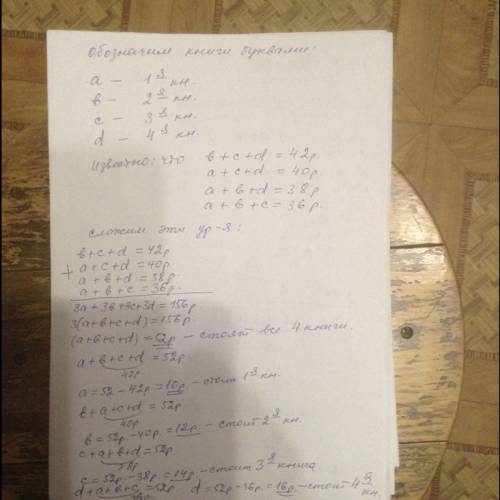 Обозначим книги буквами:
a – 1 я кн.
в – 2 я кн.
c – 3 я кн.
d – 4 я кн.
Известно: что в + c + d = 42р.
a + c + d = 40р.
a + в + d = 38р.
a + в + c = 36р.
сложим эти ур-я:
в + c + d = 42р
+ a + c + d = 40р.
a + в + d = 38р.
a + в + c = 36р.
3a + 3в + 3c + 3d = 156р
3(a + в + c + d) = 156р
(a + в + c + d) = 52р – стоят все 4 книги.
a + в + c + d = 52р
42р
a = 52 - 42р = 10р – стоит 1 я кн.
в + a + c + d = 52р
40р
в = 52р - 40р = 12р – стоит 2 я кн.
c + a + в + d = 52р
38р
c = 52р - 38р = 14р – стоит 3 я книга
d + a + в + c = 52р d = 52р - 36р = 16р – стоит 4 я кн.
36р